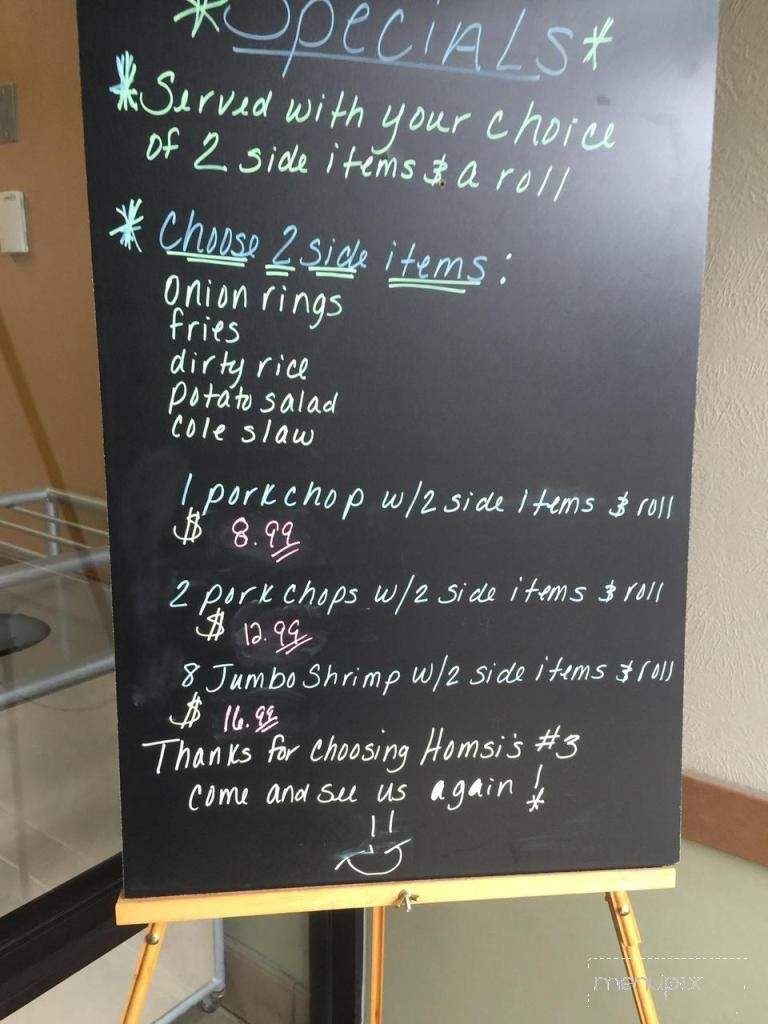 * Specials *
* Served with your choice
of 2 side items & a roll
* Choose 2 side items:
onion rings
fries
dirty rice
potato salad
cole slaw
1 pork chop w/2 side items & roll
$ 8.99
2 pork chops w/2 side items & roll
$ 12.99
8 Jumbo Shrimp w/2 side items & roll
$ 16.99
Thanks for choosing Homsi's #3
come and see us again!
*
menupix